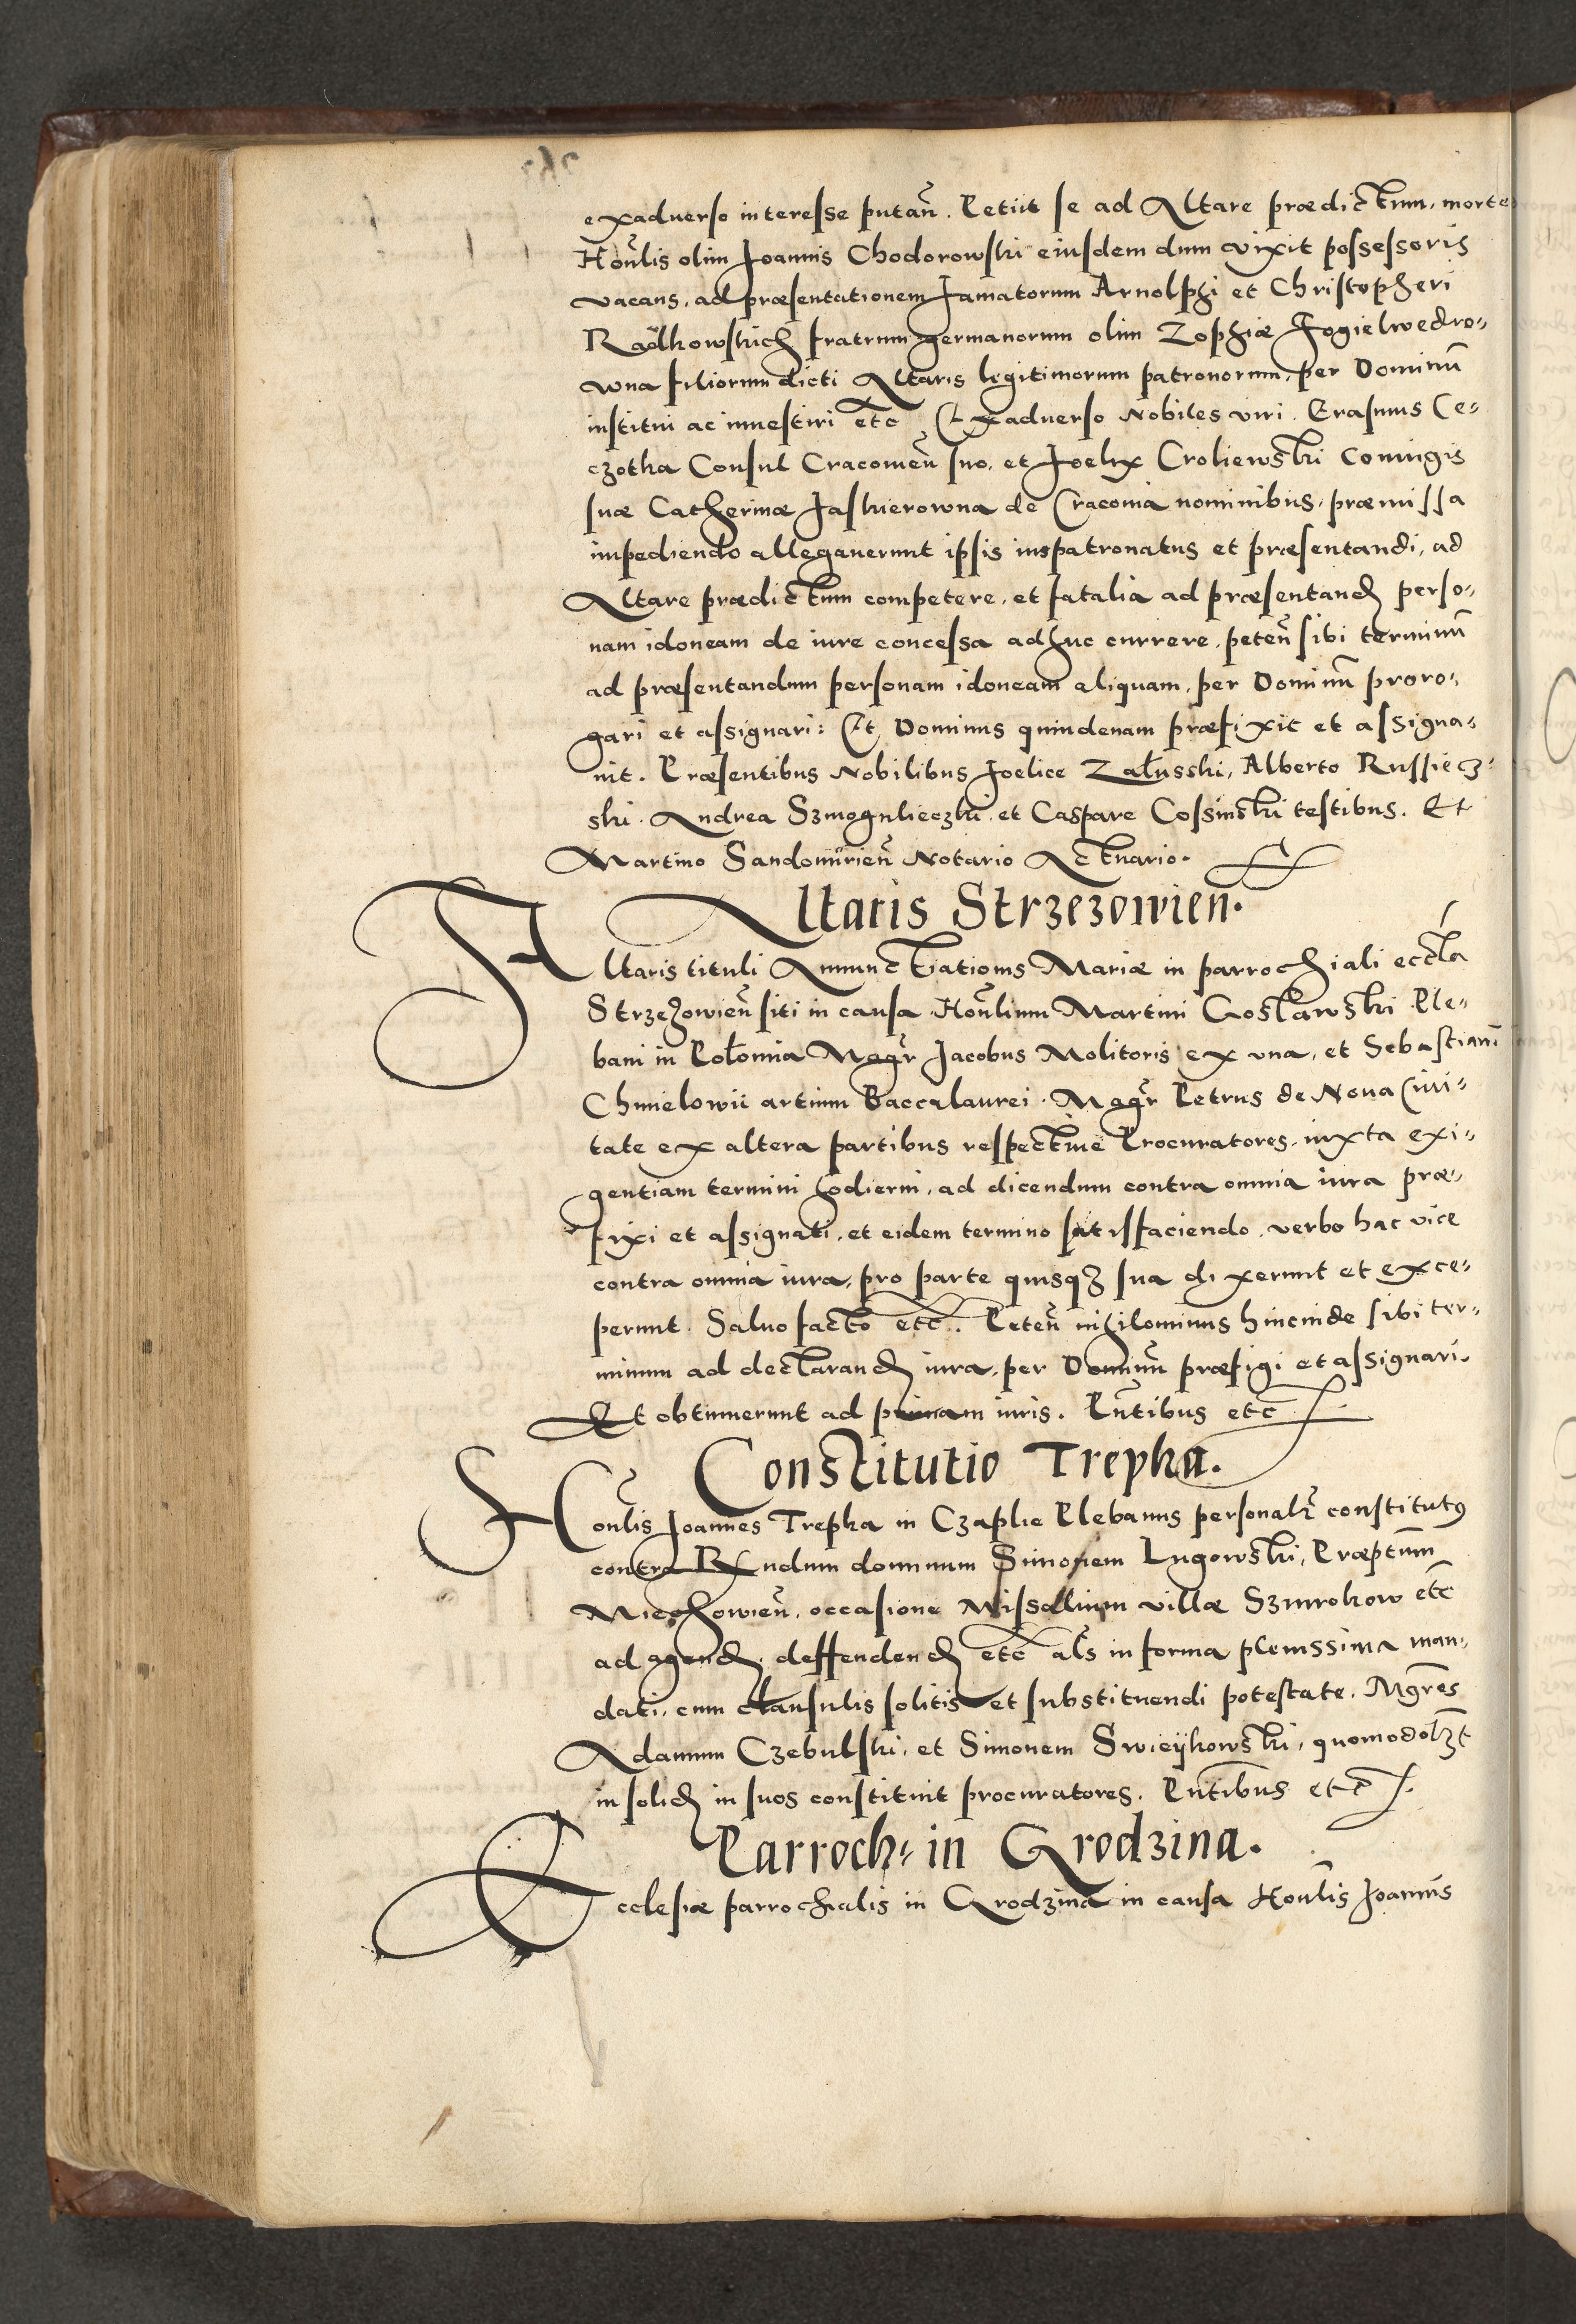 exaduerso interesse putan̄. Petiit se ad Altare prædictum, morte
Hon̄lis olim Joannis Chodorowski eiusdem dum vixit possessoris
vacans, ad præsentationem famatorum Arnolphi et Christopheri
Radkowskich fratrum germanorum olim Zophiæ Fogielwedro-
wna filiorum dicti Altaris legitimorum patronorum, per Dominū
institui ac inuestiri etc̄ Exaduerso Nobiles viri. Erasmus Ce-
czotka Consul Cracouien̄ suo, et Foelix Croliewski Coniugis
suæ Catherinæ Jaskierowna de Cracouia nominibus, præmissa
impediendo allegauerunt ipsis iuspatronatus et præsentandi, ad
Altare prædictum competere, et fatalia ad præsentand perso-
nam idoneam de iure concessa adhuc currere, peten̄ sibi terminū
ad præsentandum personam idoneam aliquam, per Dominū proro-
gari et assignari: Et Dominus quindenam præfixit et assigna-
uit. Præsentibus Nobilibus Foelice Załusski, Alberto Russiecz-
ski. Andrea Szmogulieczki. et Caspare Cossinski testibus. Et
Martino Sandomirien̄ Notario Actuario.
Altaris Strzezowien̄.
Altaris tituli Annunctiationis Mariæ in parrochiali eccl̄a
Strzezowien̄ siti in causa Hon̄lium Martini Gosławski Ple-
bani in Połomia Magr̄ Jacobus Molitoris ex vna, et Sebastiani
Chmielowii artium Baccalaurei. Magr̄ Petrus de Noua Ciui-
tate ex altera partibus respectiue Procuratores, iuxta exi-
gentiam termini hodierni, ad dicendum contra omnia iura præ-
fixi et assignati, et eidem termino satisfaciendo, verbo hac vice
contra omnia iura, pro parte quisqꝫ sua dixerunt et exce-
perunt. Saluo facto etc̄. Peten̄ nihilominus hincinde sibi ter-
minum ad declarand iura, per Dominū præfigi et assignari.
Et obtinuerunt ad primam iuris. Pn̄tibus etc̄
Constitutio Trepka.
Hon̄lis Joannes Trepka in Czaple Plebanus personalr̄ constitutꝰ
contra Rn̄dum dominum Simonem Lugowski, Præptum̄
Miechowien̄, occasione Missalium villæ Szmrokow etc̄
ad agend. deffendend etc̄ al̄s in forma plenissima man-
dati, cum clausulis solitis et substituendi potestate. Mgr̄es
Adamum Czebulski, et Simonem Swieÿkowski, quomodolꝫt
in solid in suos constituit procuratores. Pn̄tibus etc̄
Parroch: in Grodzina.
Ecclesiæ parrochialis in Grodzina in causa Hon̄lis Joannis